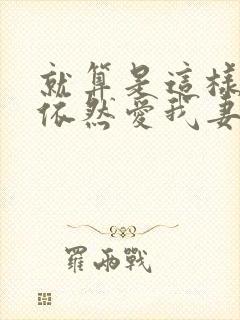 就算是這樣
依然愛我妻
羅兩戰